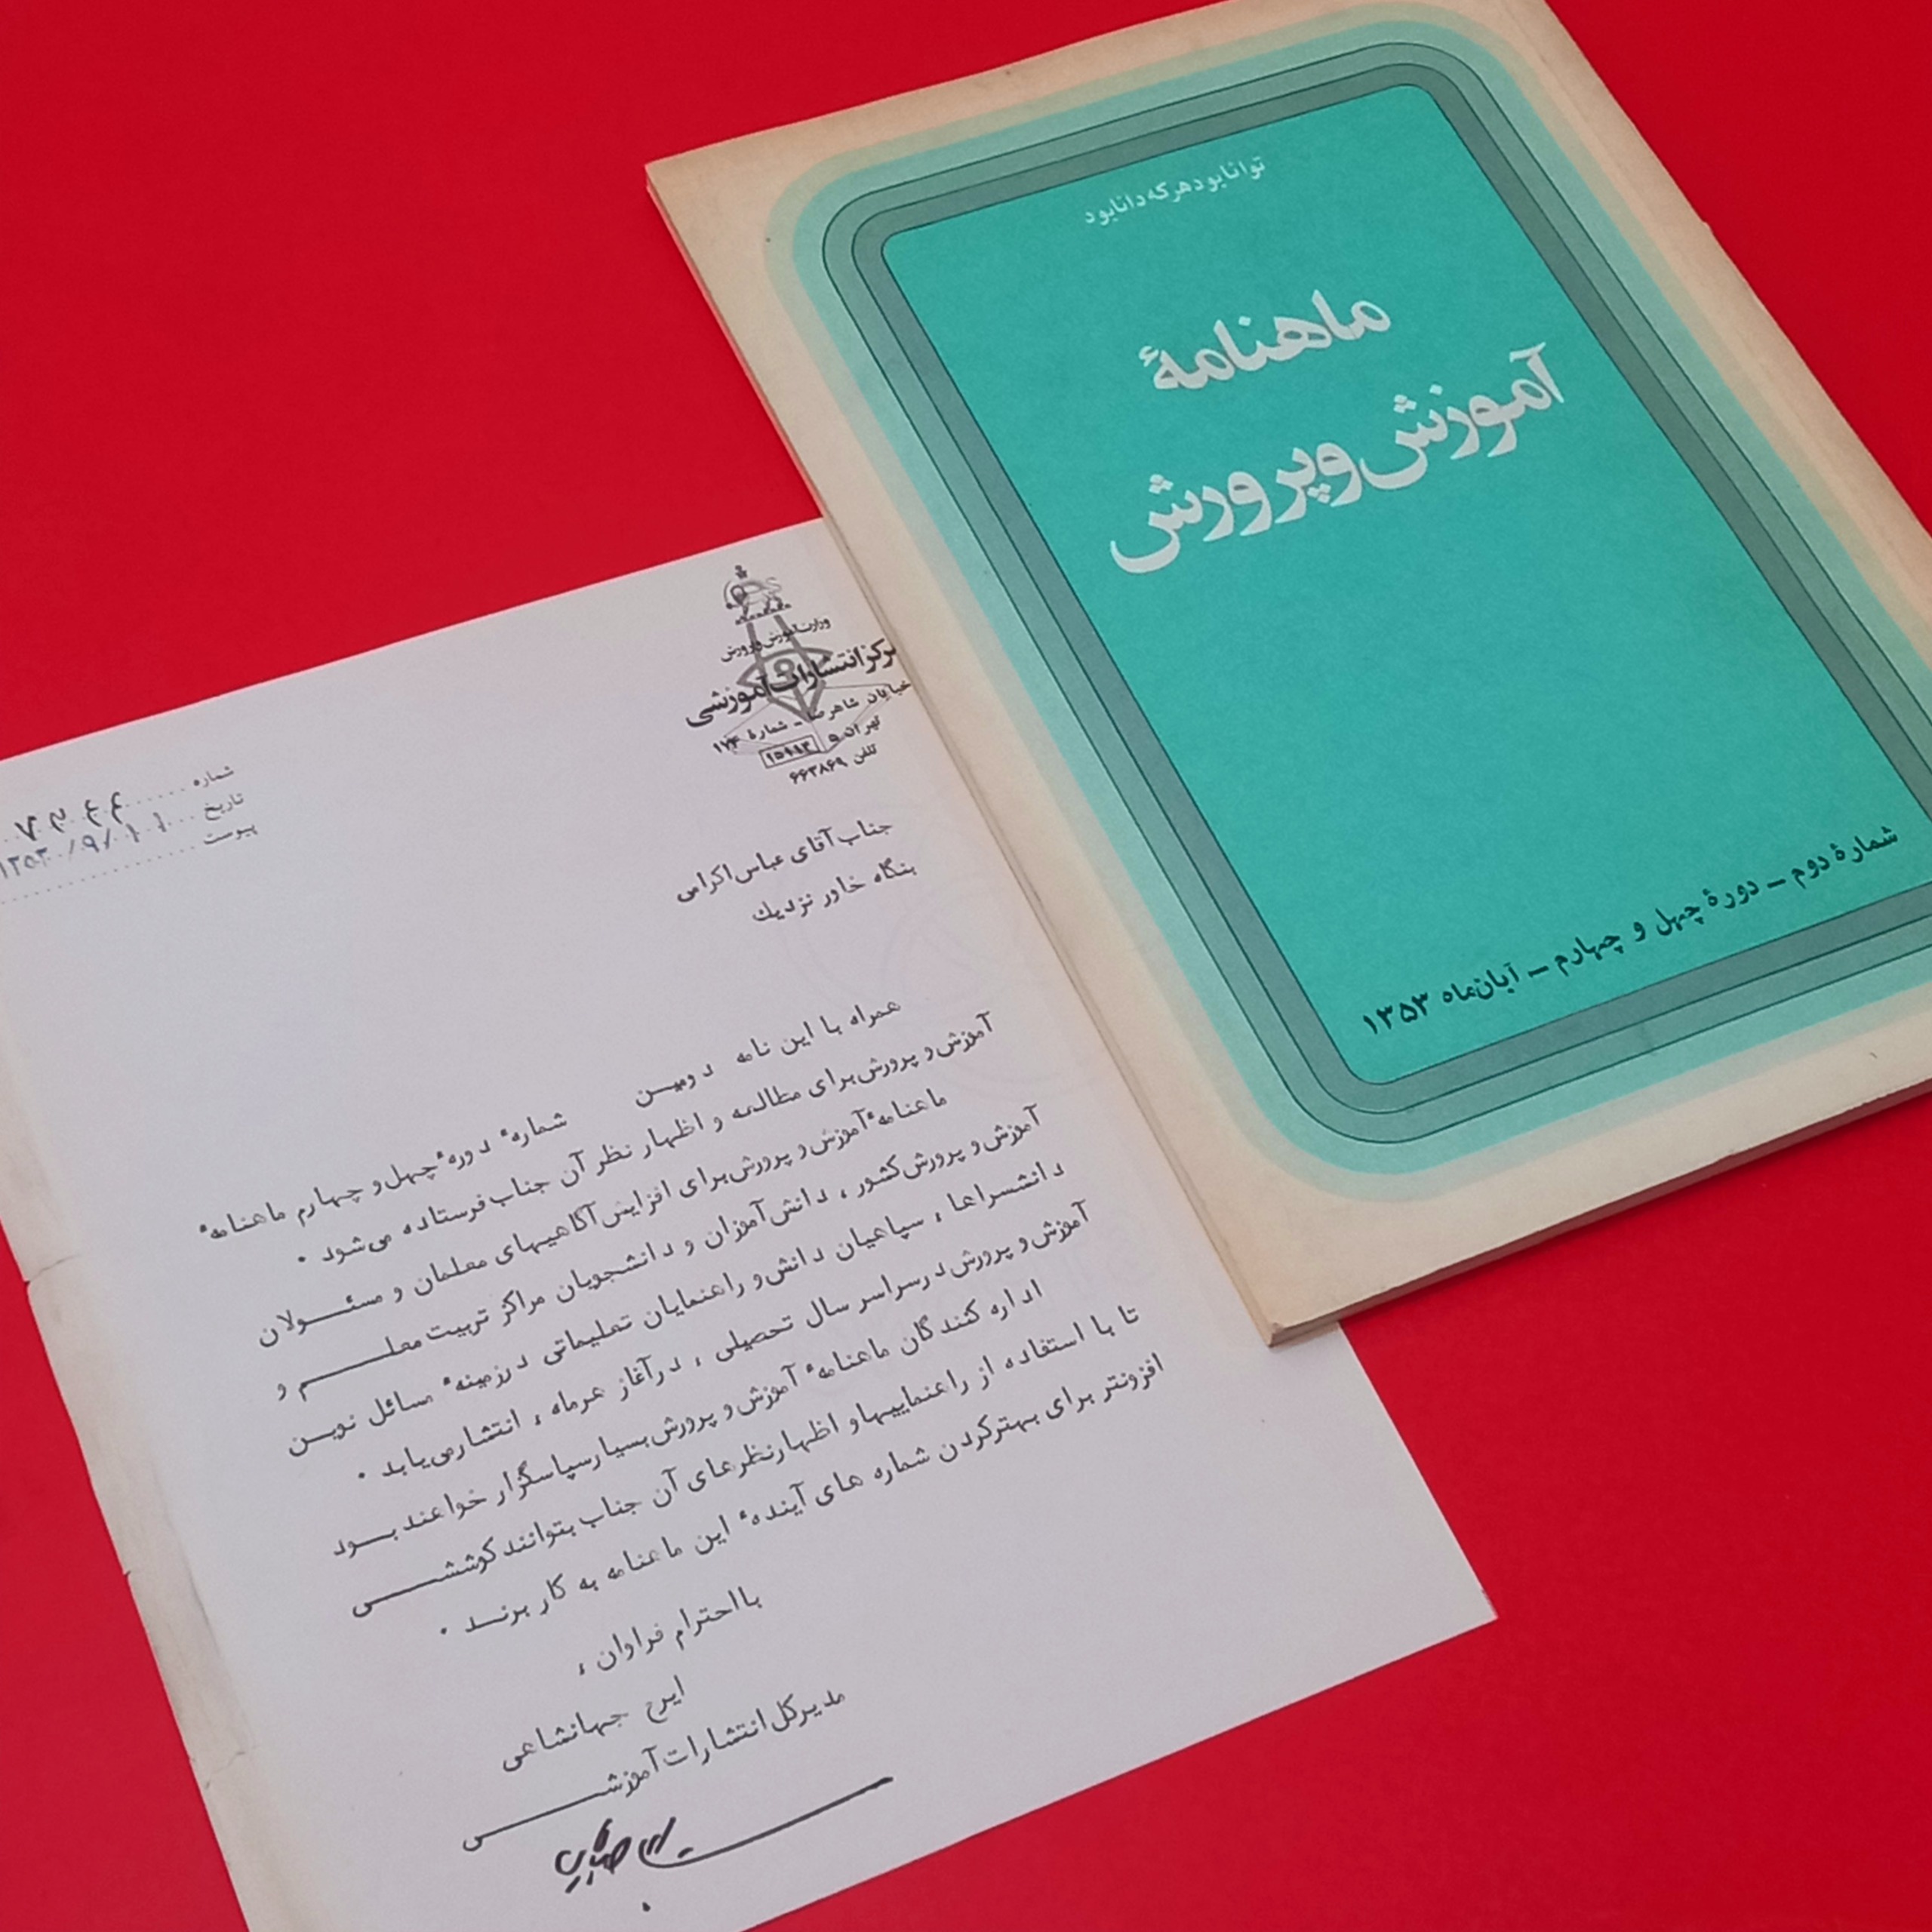 توانا بود هر که دانا بود
ماهنامهٔ
آموزش و پرورش
شمارهٔ دوم - دورهٔ چهل و چهارم - آبان‌ماه ۱۳۵۳
وزارت آموزش و پرورش
مرکز انتشارات آموزشی
خیابان شاهرضا - شمارهٔ ۱۷۴
تهران
تلفن ۶۶۳۸۶۹
شماره
تاریخ
پیوست
جناب آقای عباس اکرامی
بنگاه خاور نزدیك
همراه با این نامه دومین شمارهٔ دورهٔ چهل و چهارم ماهنامهٔ
آموزش و پرورش برای مطالعه و اظهار نظر آن جناب فرستاده می‌شود .
ماهنامهٔ آموزش و پرورش برای افزایش آگاهیهای معلمان و مسئولان
آموزش و پرورش کشور ، دانش‌آموزان و دانشجویان مراکز تربیت معلم و
دانشسراها ، سپاهیان دانش و راهنمایان تعلیماتی در زمینهٔ مسائل نوین
آموزش و پرورش در سراسر سال تحصیلی ، در آغاز هرماه ، انتشار می‌یابد .
اداره کنندگان ماهنامهٔ آموزش و پرورش بسیار سپاسگزار خواهند بود
تا با استفاده از راهنماییها و اظهارنظرهای آن جناب بتوانند کوششی
افزونتر برای بهترکردن شماره های آیندهٔ این ماهنامه به کار برند .
با احترام فراوان ،
ایرج جهانشاهی
مدیرکل انتشارات آموزشی